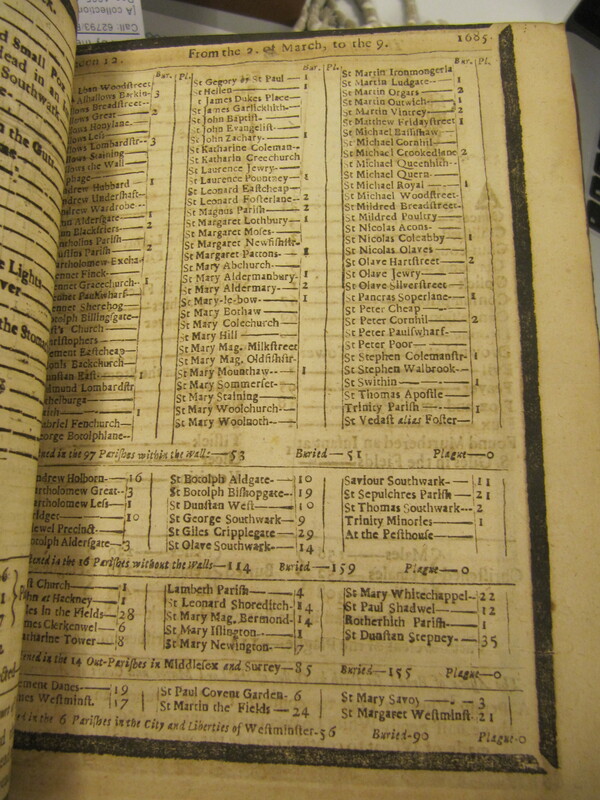 From the 2. of March, to the 9.
1685.
Bur. Pl.
Bur. Pl.
Bur. Pl.
lban Woodstreet
Alhallows Barkin- 3
llows Breadstreet-
llows Great 2
llows Honylane
llows Less
llows Lombardstr- 3
llows Staining
the Wall
drew Hubbard 1
drew Undershaft
drew Wardrobe 2
nn Aldersgate 1
nn Blackfriers 2
ntholins Parish
ustins Parish 2
artholomew Excha-
ennet Finck
ennet Gracechurch 1
ennet Paulswharf
ennet Sherehog
otolph Billingsgate
st's Church
ristophers
ement Eastcheap
ionis Backchurch
unstan East 1
dmund Lombardstr
thelburga
aith 1
abriel Fenchurch
eorge Botolphlane
St Gregory by St Paul 1
St Hellen 1
St James Dukes Place
St James Garlickhith
St John Baptist
St John Evangelist
St John Zachary 1
St Katharine Coleman
St Katharin Creechurch
St Laurence Jewry
St Laurence Pountney 1
St Leonard Eastcheap
St Leonard Fosterlane 2
St Magnus Parish 2
St Margaret Lothbury 1
St Margaret Moses
St Margaret Newfishstr-
St Margaret Pattons 1
St Mary Abchurch
St Mary Aldermanbury 1
St Mary Aldermary 2
St Mary-le-bow 1
St Mary Bothaw
St Mary Colechurch
St Mary Hill
St Mary Mag. Milkstreet
St Mary Mag. Oldfishstr
St Mary Mounthaw 1
St Mary Sommerset
St Mary Staining
St Mary Woolchurch
St Mary Woolnoth
St Martin Ironmongerla
St Martin Ludgate 1
St Martin Orgars 2
St Martin Outwich 1
St Martin Vintrey 2
St Matthew Fridaystreet 1
St Michael Bassishaw
St Michael Cornhil
St Michael Crookedlane 2
St Michael Queenhith
St Michael Quern
St Michael Royal 1
St Michael Woodstreet
St Mildred Breadstreet
St Mildred Poultry
St Nicolas Acons
St Nicolas Coleabby 1
St Nicolas Olaves
St Olave Hartstreet 2
St Olave Jewry
St Olave Silverstreet
St Pancras Soperlane 1
St Peter Cheap
St Peter Cornhil 2
St Peter Paulswharf
St Peter Poor
St Stephen Colemanstr- 1
St Stephen Walbrook
St Swithin 1
St Thomas Apostle
Trinity Parish 1
St Vedast alias Foster
in the 97 Parishes within the Walls 53 Buried 51 Plague 0
ndrew Holborn 16
artholomew Great 3
artholomew Less 1
ridget 10
idewel Precinct
otolph Aldersgate 3
St Botolph Aldgate 10
St Botolph Bishopgate 19
St Dunstan West 10
St George Southwark 9
St Giles Cripplegate 29
St Olave Southwark 14
Saviour Southwark 11
St Sepulchres Parish 21
St Thomas Southwark 2
Trinity Minories 1
At the Pesthouse
in the 16 Parishes without the Walls 114 Buried 159 Plague 0
st Church 1
John at Hackney 1
les in the Fields 28
mes Clerkenwel 6
atharine Tower 8
Lambeth Parish 4
St Leonard Shoreditch 14
St Mary Mag. Bermond 14
St Mary Islington 1
St Mary Newington 7
St Mary Whitechappel 22
St Paul Shadwel 12
Rotherhith Parish 1
St Dunstan Stepney 35
in the 14 Out-Parishes in Middlesex and Surrey 85 Buried 155 Plague 0
ement Danes 19
mes Westminst. 17
St Paul Covent Garden 6
St Martin the Fields 24
St Mary Savoy 3
St Margaret Westminst. 21
in the 6 Parishes in the City and Liberties of Westminster. 56 Buried-90 Plague-0